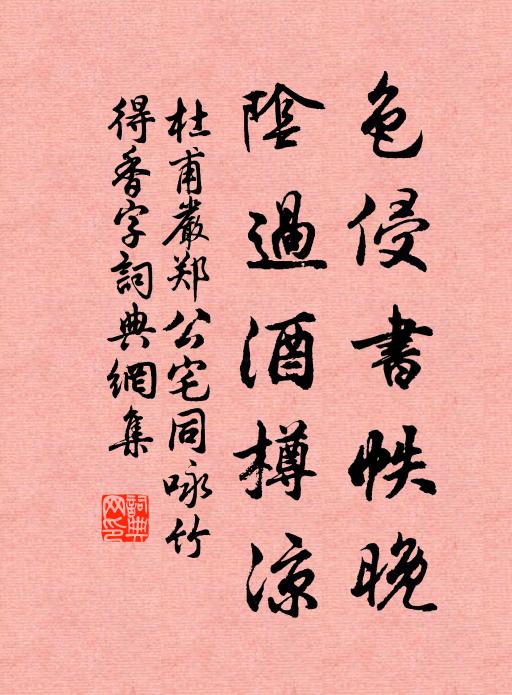 色侵書帙晚
陰過酒樽涼
杜甫嚴郑公宅同咏竹
得香字詞典網集
詞典
网印